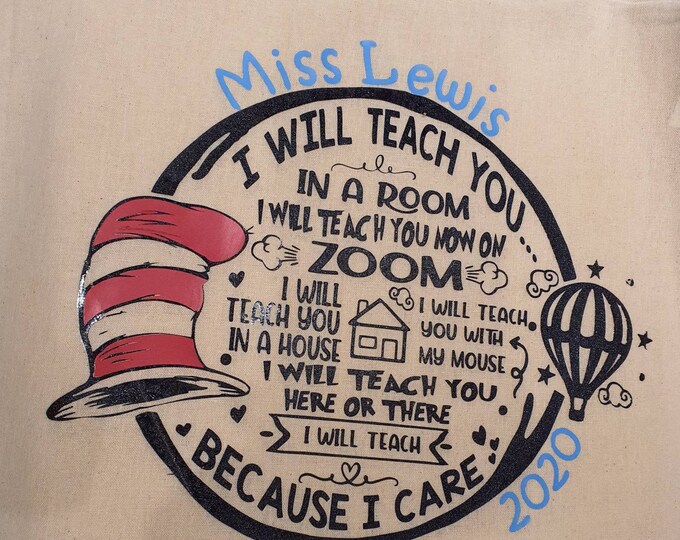 Miss Lewis
I WILL TEACH YOU...
IN A ROOM
I WILL TEACH YOU NOW ON
ZOOM
I WILL
TEACH YOU
IN A HOUSE
I WILL TEACH
YOU WITH
MY MOUSE
I WILL TEACH YOU
HERE OR THERE
I WILL TEACH
BECAUSE I CARE
2020